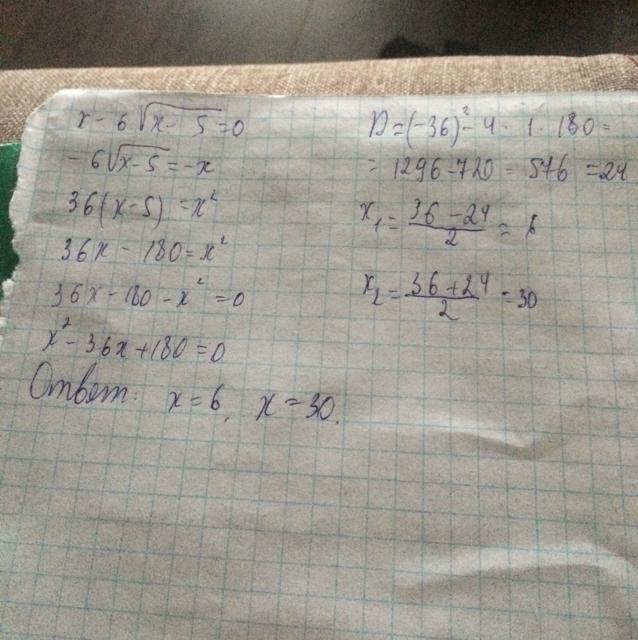 x - 6√x - 5 = 0
- 6√x - 5 = -x
36(x - 5) = x²
36x - 180 = x²
36x - 180 - x² = 0
x² - 36x + 180 = 0
Ответ: x = 6, x = 30.
D = (-36)² - 4 · 1 · 180 =
= 1296 - 720 = 576 = 24
x₁ = (36 - 24)/2 = 6
x₂ = (36 + 24)/2 = 30